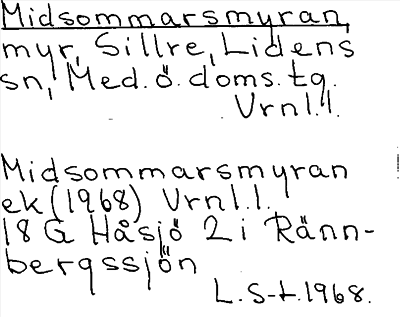 Midsommarsmyran,
myr, Sillre, Lidens
sn, Med.ö.doms.tg.
Vrnl.l.
Midsommarsmyran
ek(1968) Vrnl.l.
18 G Håsjö 2 i Ränn-
bergssjön
L.S-t.1968.